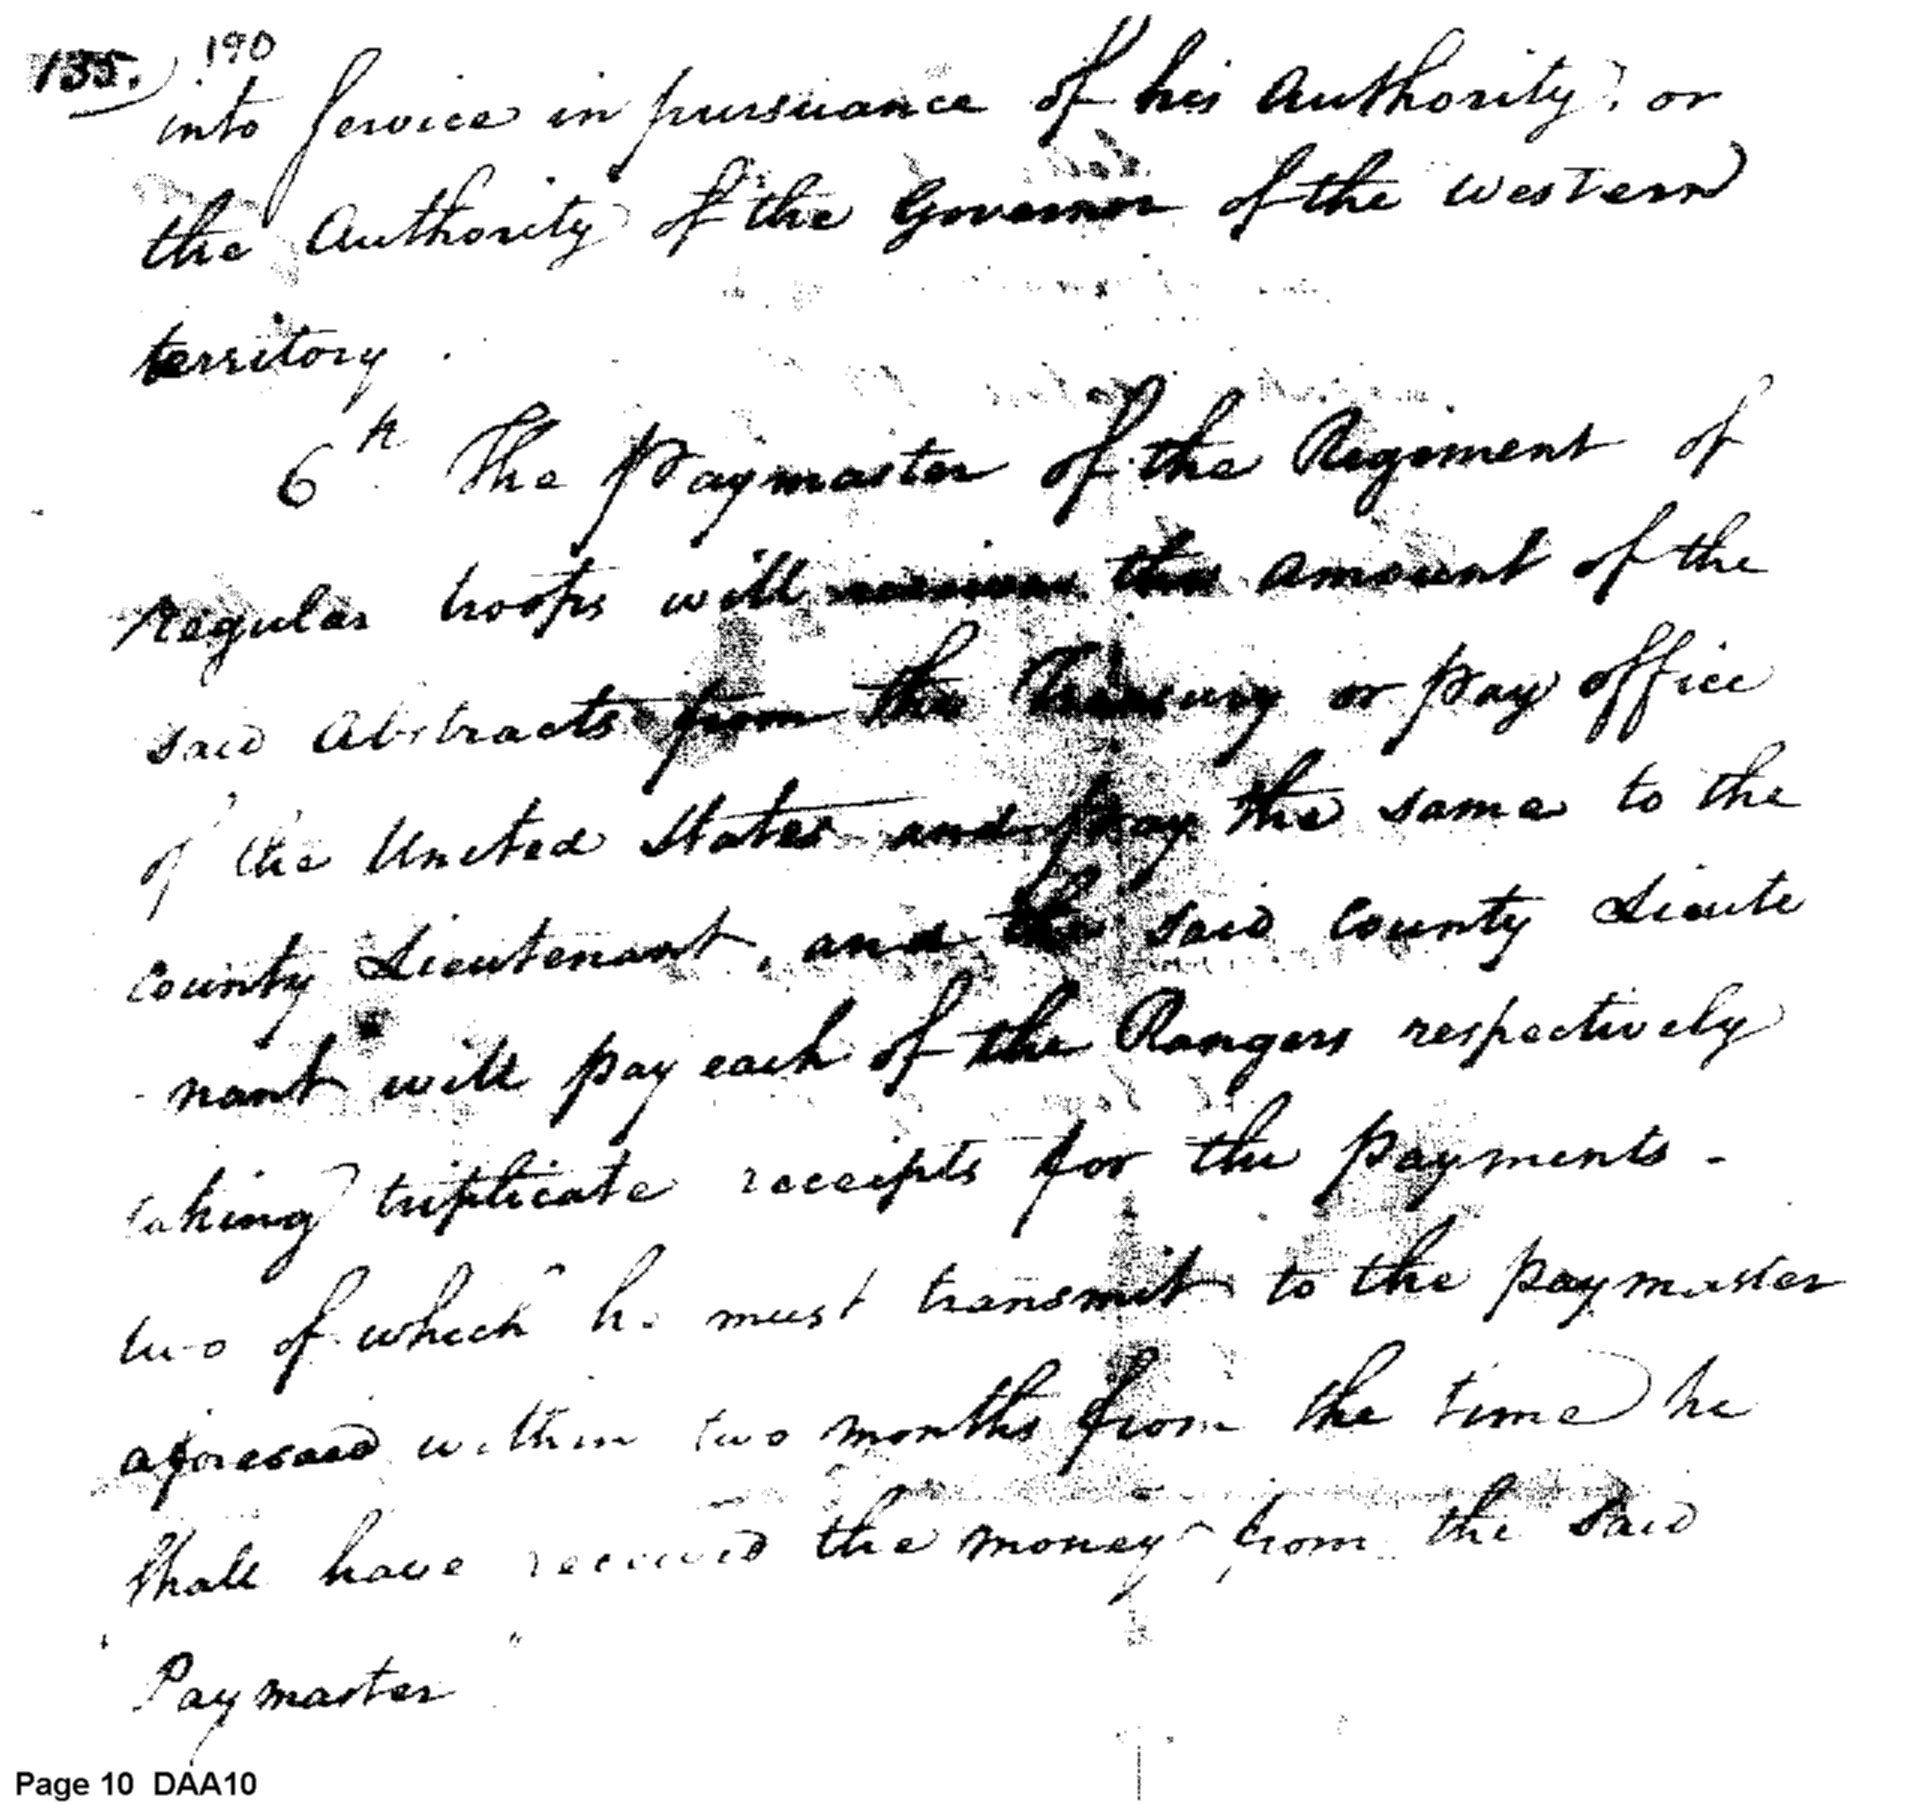 135. 190
into Service in pursuance of his Authority, or
the Authority of the Governor of the western
territory.
6th The Paymaster of the Regiment of
Regular troops will receive the amount of the
said Abstracts from the Treasury or pay office
of the United States and pay the same to the
County Lieutenant, and the said County Lieute
-nant will pay each of the Rangers respectively
taking triplicate receipts for the payments -
two of which he must transmit to the paymaster
aforesaid within two months from the time he
shall have received the money from the said
Paymaster
Page 10 DAA10